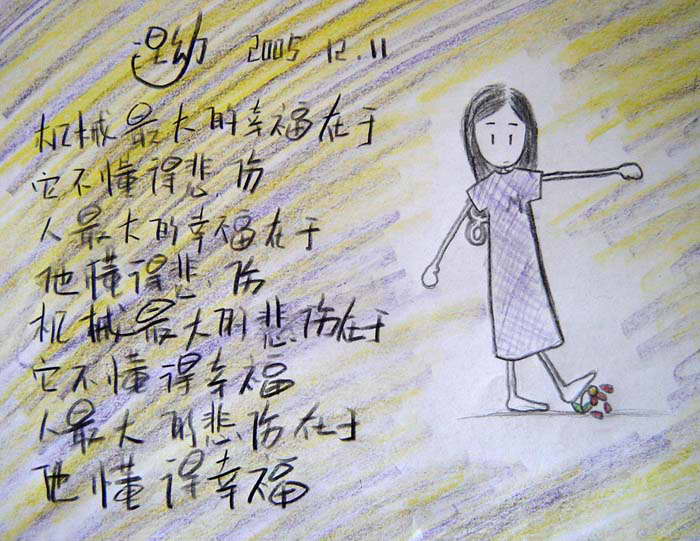 2005.12.11
机械最大的幸福在于
它不懂得悲伤
人最大的幸福在于
他懂得悲伤
机械最大的悲伤在于
它不懂得幸福
人最大的悲伤在于
他懂得幸福